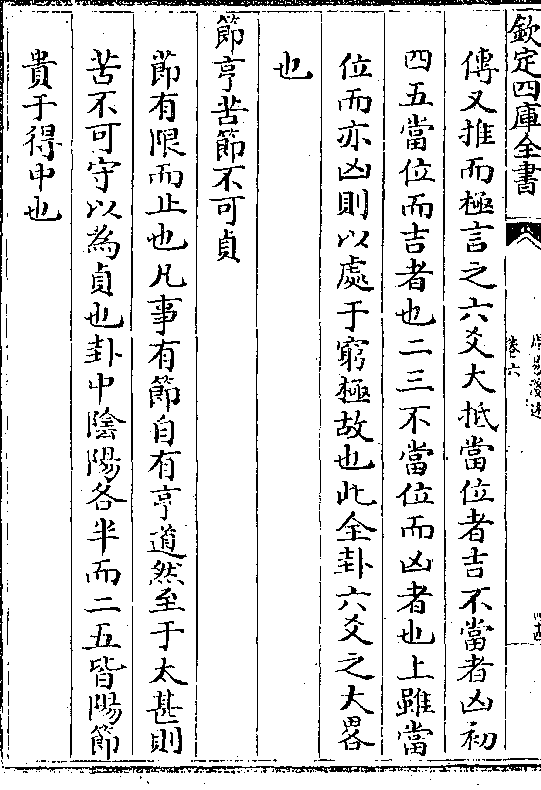 欽定四庫全書
卷六
傳又推而極言之六爻大抵當位者吉不當者凶初
四五當位而吉者也二三不當位而凶者也上雖當
位而亦凶則以處于窮極故也此全卦六爻之大畧
也
節亨苦節不可貞
節有限而止也凡事有節自有亨道然至于太甚則
苦不可守以為貞也卦中陰陽各半而二五皆陽節
貴于得中也